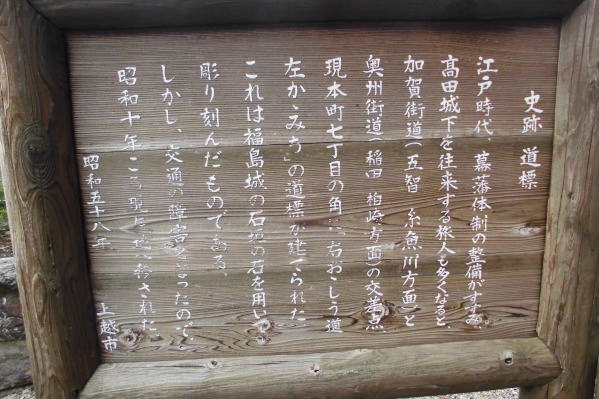 史跡 道標
江戸時代、幕藩体制の整備がすすみ
高田城下を往来する旅人も多くなると、
加賀街道(五智 糸魚川方面)と
奥州街道(稲田 柏崎方面)の交差点、
現本町七丁目の角に、右おくしう道
左かゞみち」の道標が建てられた。
これは福島城の石垣の石を用い
彫り刻んだものである。
しかし、交通の障害となったので、
昭和十年ころ現在地へ移された。
昭和五十八年 上越市